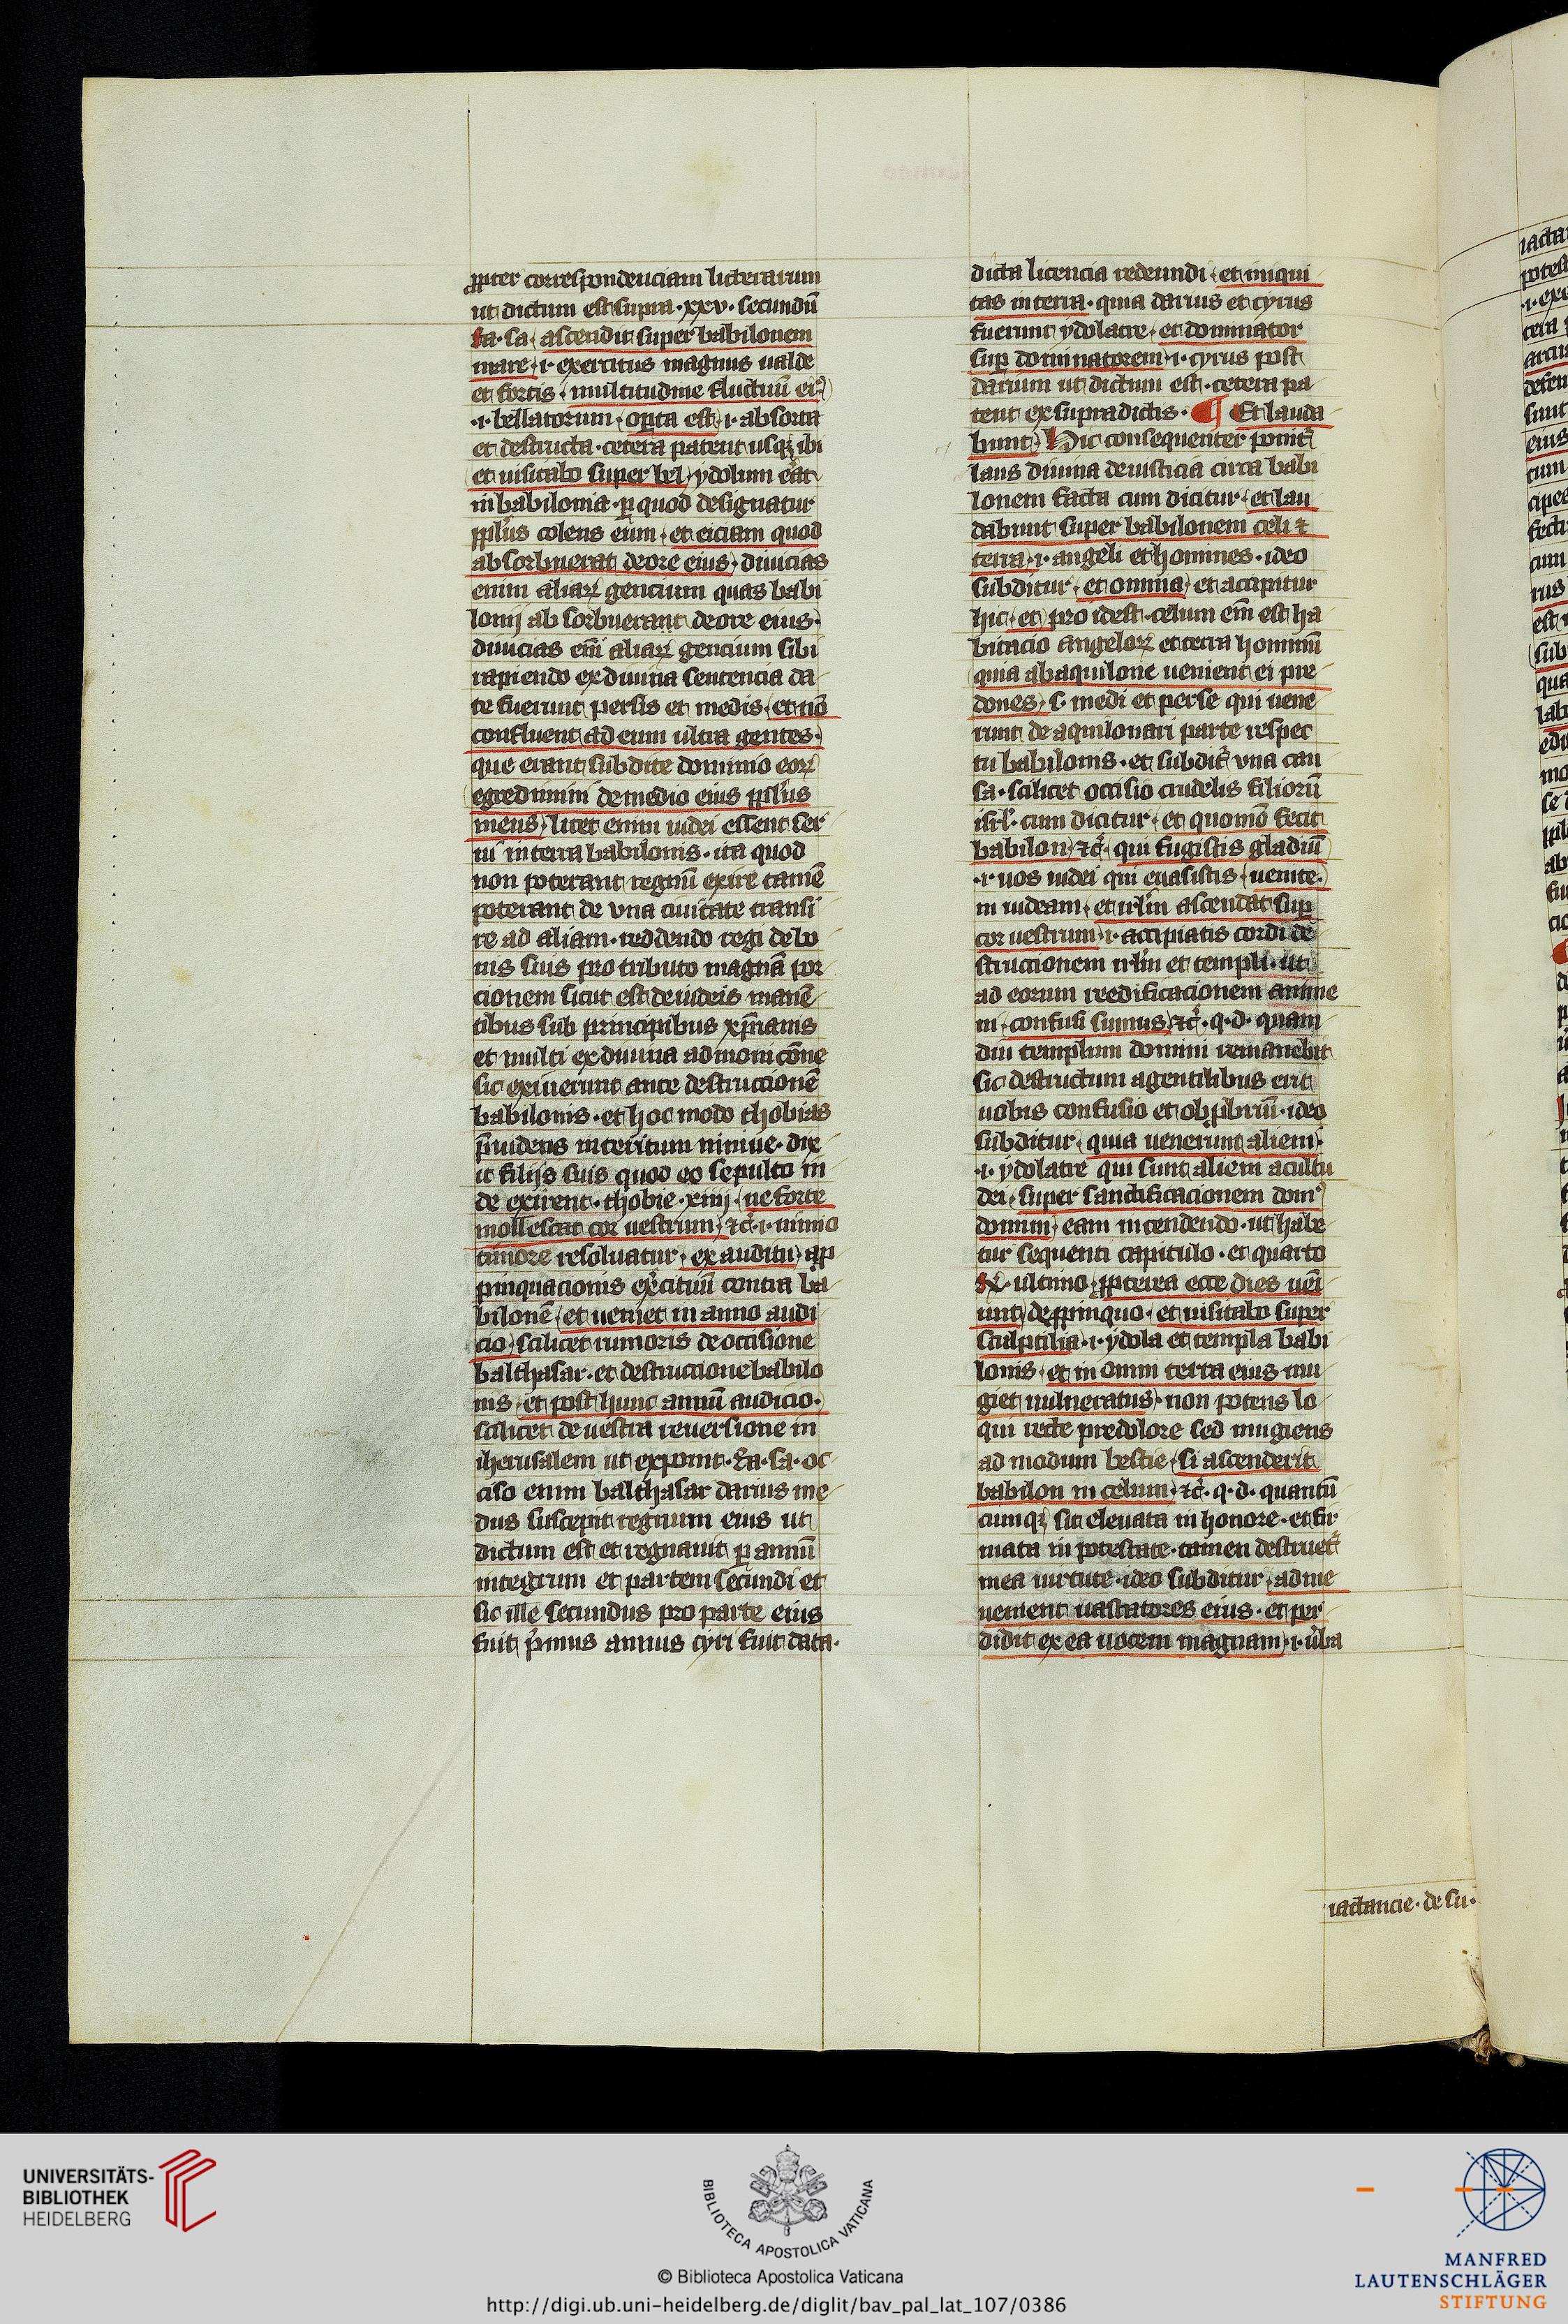 ꝓpter correspondenciam litterarum
ut dictum est supra·xxv·secundū
Ra·sa·ascendit super babilonem
mare·i·exercitus magnus ualde
et fortis·multitudine fluctuū eiꝰ
·i·bellatorum·oꝑta est·i·absorta
et destructa·cetera patent usqꝫ ibi
et uisitabo super bel·ydolum erat
in babilonia·ꝑ quod designatur
ppl'us colens eum·et eiciam quod
absorbuerat de ore eius·diuicias
enim aliaꝝ gencium quas babi
lonij absorbuerant de ore eius·
diuicias em̄ aliaꝝ gencium sibi
rapiendo ex diuina sentencia da
te fuerunt persis et medis·et nō
confluent ad eum ultra gentes·
que erant subdite dominio eoꝝ
egredimini de medio eius ppl'us
meus·licet enim iudei essent ser
ui in terra babilonis·ita quod
non poterant regnū exire tamē
poterant de vna ciuitate transi
re ad aliam·reddendo regi de bo
nis suis pro tributo magnā por
cionem sicut est de iudeis manē
tibus sub principibus xp̄ianis
et multi ex diuina admonicōne
sic exiuerunt ante destructionē
babilonis·et hoc modo thobias
p̄uidens interitum niniue·dix
it filijs suis quod eo sepulto in
de exirent·thobie·xiiij·ne forte
mollescat cor uestrum·⁊c̄·i·nimio
timore resoluatur·ex auditu·ap
pinquacionis ex̄cituū contra ba
bilonē·et ueniet in anno audi
cio·scilicet rumoris de occisione
balthasar·et destructione babilo
nis·et post hunc annū audicio·
scilicet de uestra reuersione in
iherusalem ut exponit·Ra·sa·oc
ciso enim balthasar darius me
dus suscepit regnum eius ut
dictum est et regnauit ꝑ annū
integrum et partem secundi et
sic ille secundus pro parte eius
fuit p̄mus annus cyri fuit data·
dicta licencia redeundi·et iniqui
tas in terra·quia darius et cyrus
fuerunt ydolatre·et dominator
suꝑ dominatorem·i·cyrus post
darium ut dictum est·cetera pa
tent ex supradictis·¶ Et lauda
bunt·Hic consequenter ponit̄
laus diuina de iusticia circa babi
lonem facta cum dicitur·et lau
dabunt super babilonem celi ⁊
terra·i·angeli et homines·ideo
subditur·et omnia·et accipitur
hic·et·pro idest·celum em̄ est ha
bitacio angeloꝝ et terra hominū
quia ab aquilone uenient ei pre
dones·s·medi et perse qui uene
runt de aquilonari parte respec
tu babilonis·et subdit̄ vna cau
sa·scilicet occisio crudelis filiorū
isrl'·cum dicitur·et quomō fecit
babilon·⁊c̄·qui fugistis gladiū
·i·uos iudei qui euasistis·uenite·
in iudeam·et irl'm ascendat suꝑ
cor uestrum·i·accipiatis cordi de
structionem irl'm et templi·ut
ad eorum reedificacionem anime
ni·confusi sumus·⁊c̄·q·d·quam
diu templum domini remanebit
sic destructum a gentilibus erit
uobis confusio et obꝓbriū·ideo
subditur·quia uenerunt alieni·
·i·ydolatre qui sunt alieni a cultu
dei·super sanctificacionem domꝰ
domini·eam incendendo·ut habe
tur sequenti capitulo·et quarto
R̄·ultimo·ꝓpterea ecce dies ueni
unt·de ꝓpinquo·et uisitabo super
sculptilia·i·ydola et templa babi
lonis·et in omni terra eius mu
giet uulneratus·non potens lo
qui recte pre dolore sed mugiens
ad modum bestie·si ascenderit
babilon in celum·⁊c̄·q·d·quantū
cumqꝫ sit eleuata in honore·et fir
mata in potestate·tamen destruet̄
mea uirtute·ideo subditur·ad me
uenient uastatores eius·et per
didit ex ea uocem magnam·i·ūba
iactancie·de su·
UNIVERSITÄTS-
BIBLIOTHEK
HEIDELBERG
BIBLIOTECA APOSTOLICA VATICANA
© Biblioteca Apostolica Vaticana
http://digi.ub.uni-heidelberg.de/diglit/bav_pal_lat_107/0386
MANFRED
LAUTENSCHLÄGER
STIFTUNG